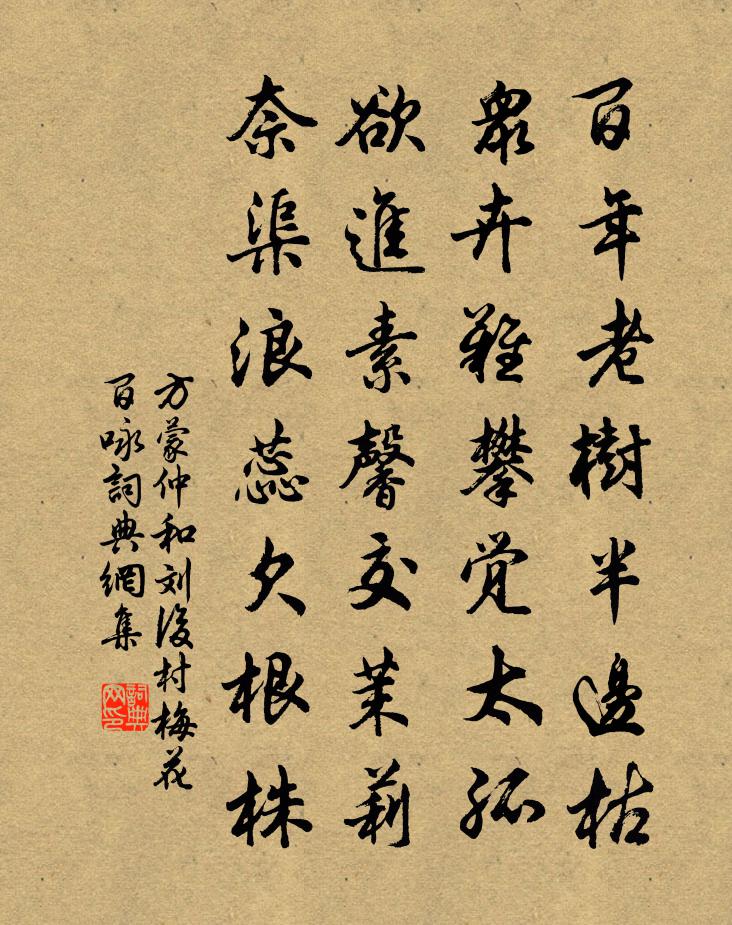 百年老樹半邊枯
衆卉難攀覚太孤
欲進素馨交茉莉
奈渠浪蕊欠根株
方蒙仲和刘後村梅花
百咏詞典網集
詞典网印